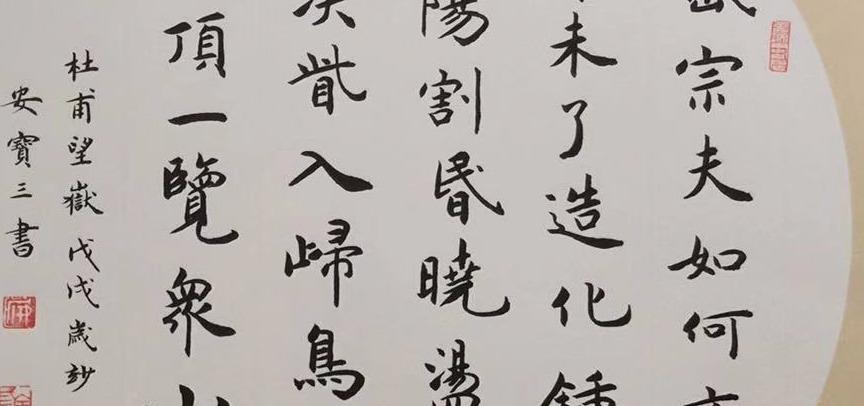 宗夫如何
未了造化鍾
陽割昬曉盪
決眥入歸鳥
頂一覽衆山
杜甫望嶽戊戌歲杪
安寶三書